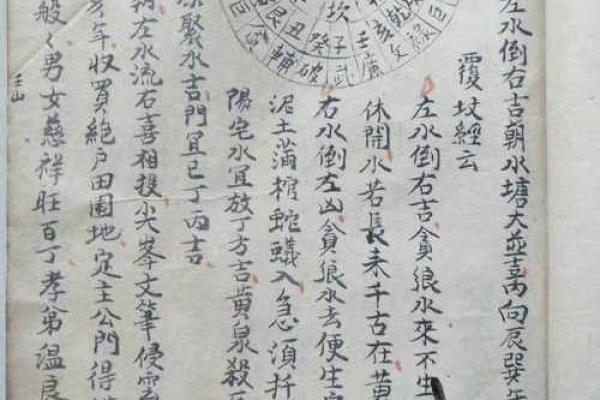 左水倒右吉朝水塘大並喜丙向辰巽
覆坟經云
左水倒右吉貪狼水來不生
休開水若長来千古在黄
右水倒左凶貪狼水去便生
泥土滿棺蛇蟻入急須扦
陽宅水宜放丁方吉黄泉殺
坎
艮丑癸子壬亥乾
輔破武廉文祿巨
聚水吉門宜巳丁丙吉
左水流右喜相投尖峯文筆侵雲
年收買絶户田園地定主公門得
般々男女慈祥旺百丁孝弟溫良
壬山